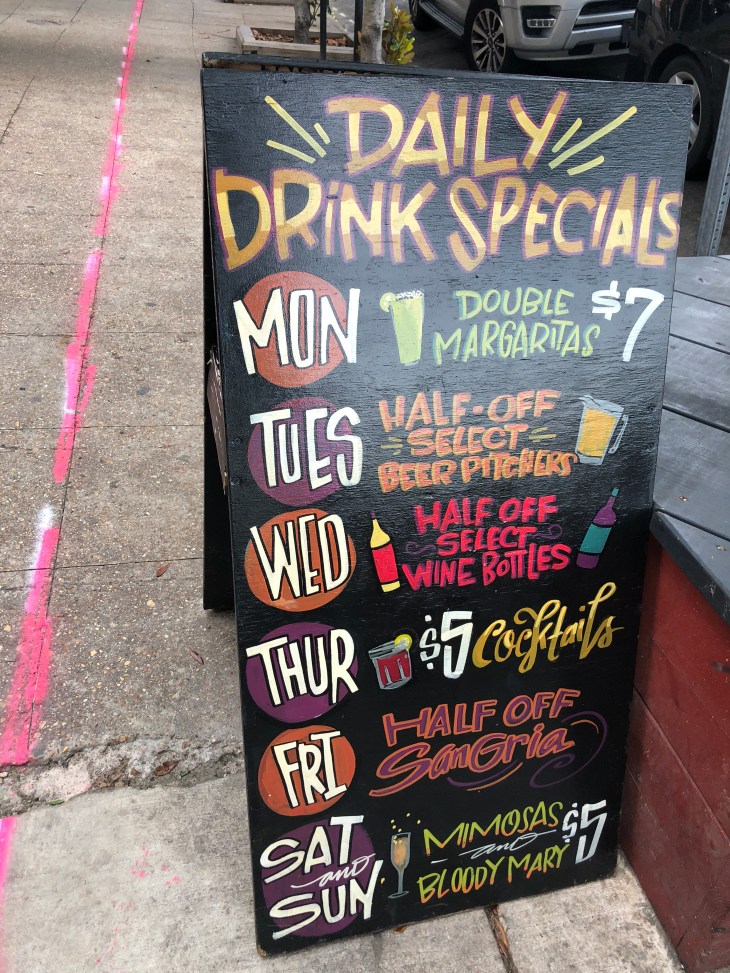 DAILY
DRINK SPECIALS
MON
DOUBLE
MARGARITAS
$7
TUES
HALF-OFF
SELECT
BEER PITCHERS
WED
HALF OFF
SELECT
WINE BOTTLES
THUR
$5 Cocktails
FRI
HALF OFF
SanGria
SAT
and
SUN
MIMOSAS
and
BLOODY MARY
$5